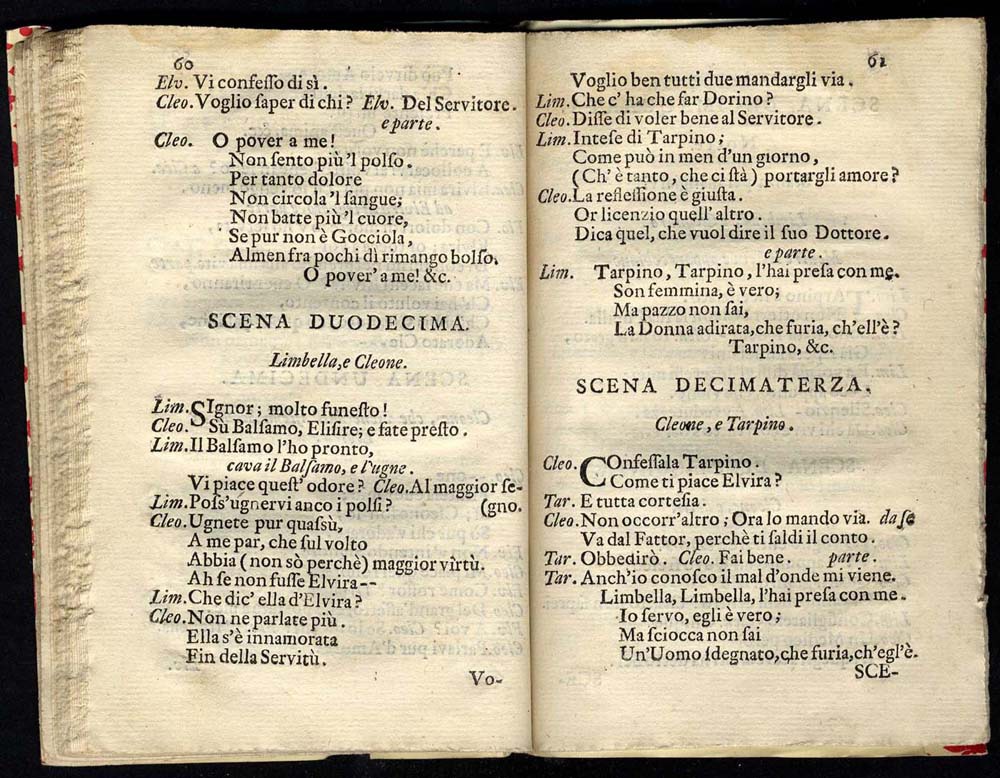 60
Elv. Vi confeſſo di sì.
Cleo. Voglio ſaper di chi? Elv. Del Servitore.
e parte.
Cleo. O pover a me!
Non ſento più 'l polſo.
Per tanto dolore
Non circola 'l ſangue;
Non batte più 'l cuore,
Se pur non è Gocciola,
Almen fra pochi dì rimango bolſo.
O pover' a me! &c.
SCENA DUODECIMA.
Limbella, e Cleone.
Lim. SIgnor; molto funeſto!
Cleo. Sù Balſamo, Eliſire; e fate preſto.
Lim. Il Balſamo l'ho pronto,
cava il Balſamo, e l'ugne.
Vi piace queſt' odore? Cleo. Al maggior ſe-
Lim. Poſs'ugnervi anco i polſi? (gno.
Cleo. Ugnete pur quaſsù,
A me par, che ſul volto
Abbia (non sò perchè) maggior virtù.
Ah ſe non fuſſe Elvira--
Lim. Che dic' ella d'Elvira?
Cleo. Non ne parlate più.
Ella s'è innamorata
Fin della Servitù.
Vo-
61
Voglio ben tutti due mandargli via.
Lim. Che c' ha che far Dorino?
Cleo. Diſſe di voler bene al Servitore.
Lim. Inteſe di Tarpino;
Come può in men d'un giorno,
(Ch' è tanto, che ci ſtà) portargli amore?
Cleo. La refleſſione è giuſta.
Or licenzio quell' altro.
Dica quel, che vuol dire il ſuo Dottore.
e parte.
Lim. Tarpino, Tarpino, l'hai preſa con me.
Son femmina, è vero;
Ma pazzo non ſai,
La Donna adirata, che furia, ch'ell'è?
Tarpino, &c.
SCENA DECIMATERZA.
Cleone, e Tarpino.
Cleo. COnfeſſala Tarpino.
Come ti piace Elvira?
Tar. E tutta corteſia.
Cleo. Non occorr'altro; Ora lo mando via. da ſe
Va dal Fattor, perchè ti ſaldi il conto.
Tar. Obbedirò. Cleo. Fai bene. parte.
Tar. Anch'io conoſco il mal d'onde mi viene.
Limbella, Limbella, l'hai preſa con me.
Io ſervo, egli è vero;
Ma ſciocca non ſai
Un'Uomo ſdegnato, che furia, ch'egl'è.
SCE-